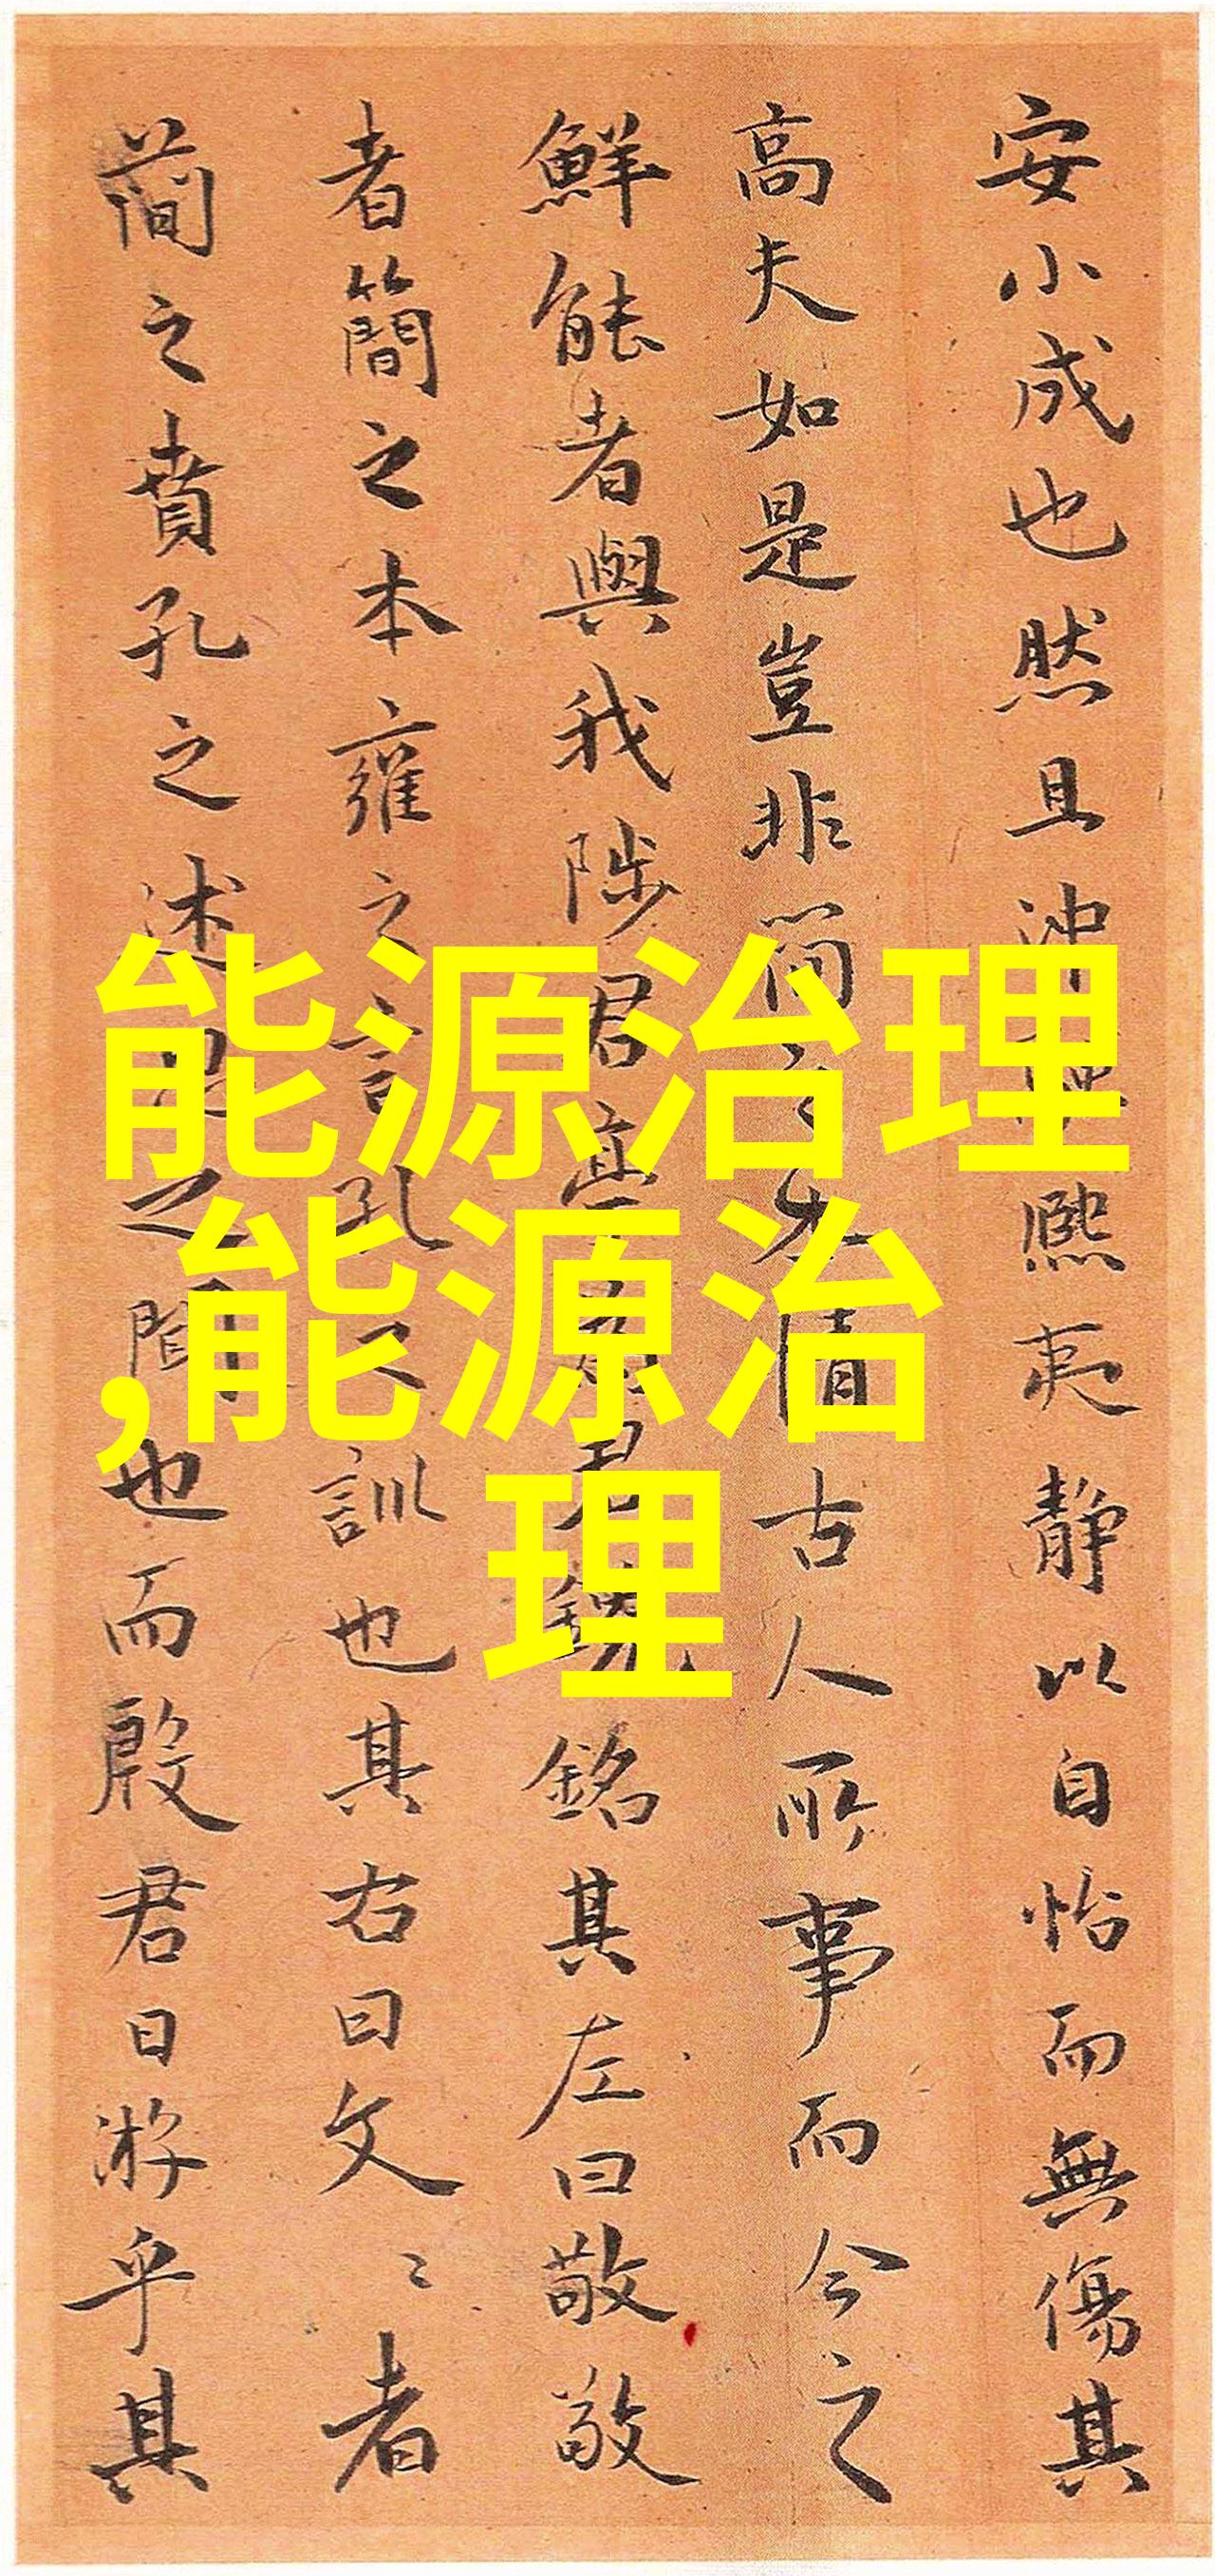 安小成也然且沖熙夷靜以自怡而無傷其
高夫如是豈非簡之情古人所事而今之
鮮能者與我陟君為君銘其左曰敬敬
者簡之本雍之言孔之訓也其右曰文〻者
簡之賁孔之述之間也而殷君日游乎其
能源治理
,能源治
理